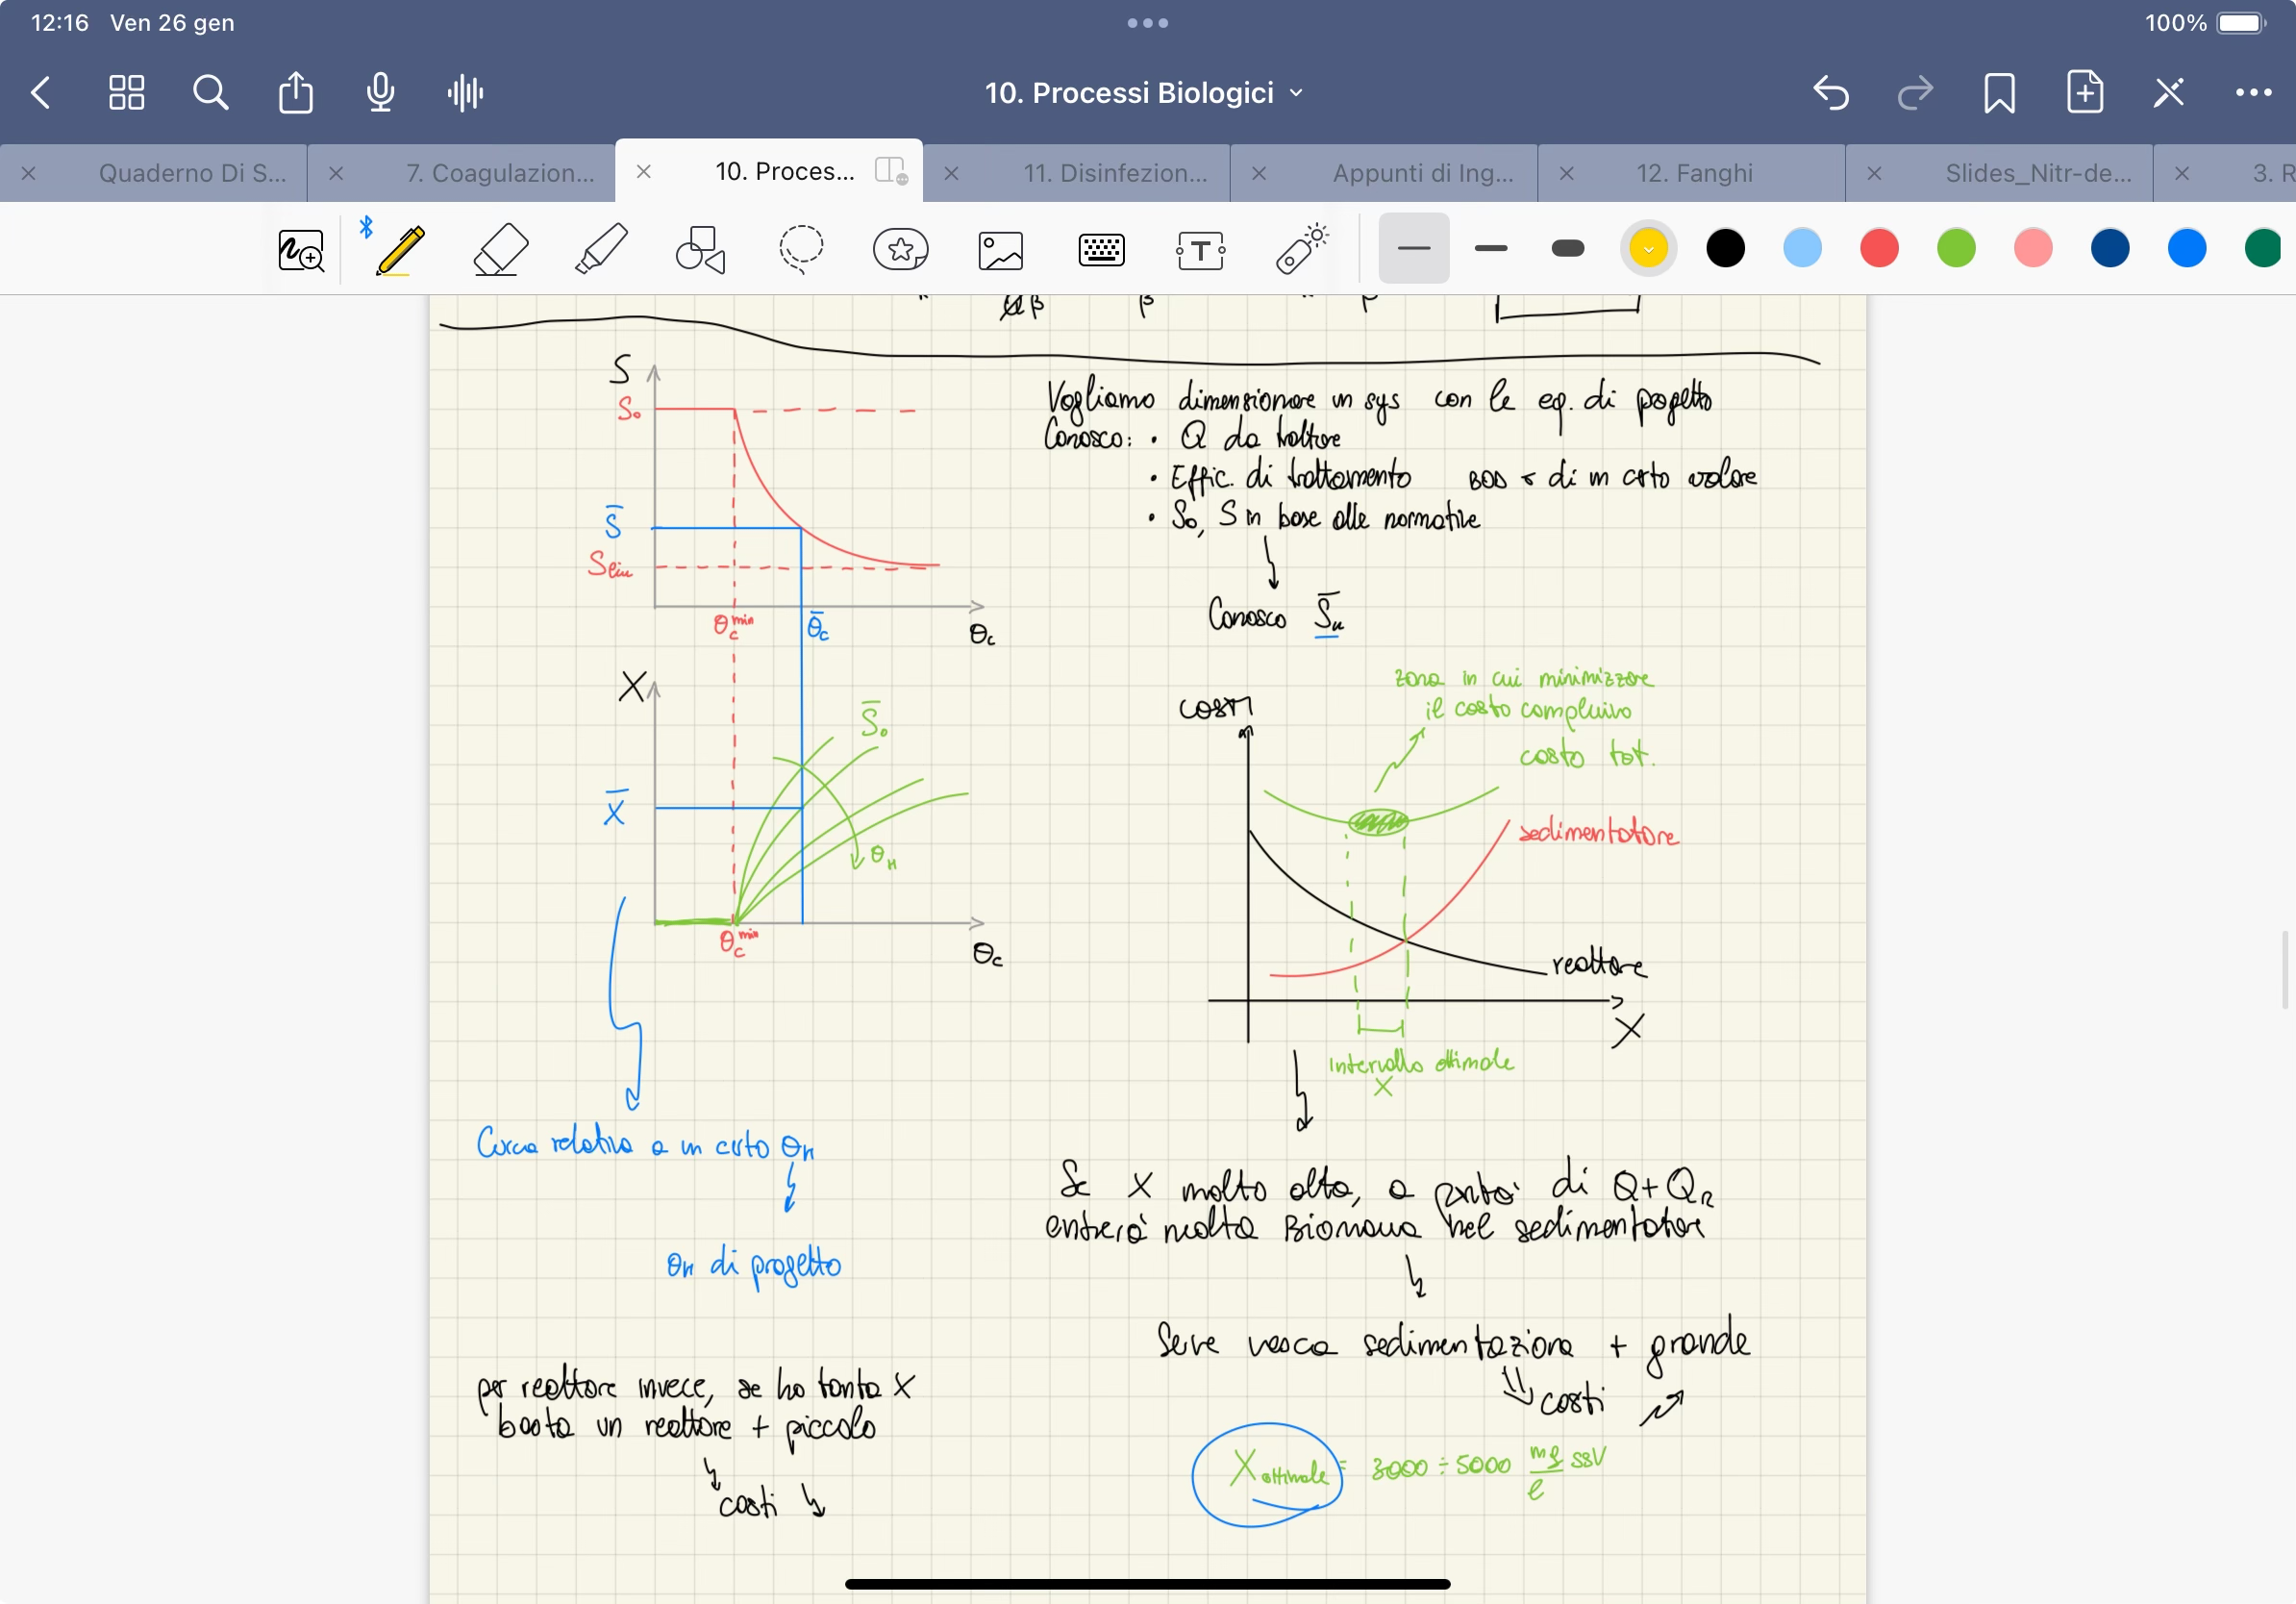 12:16 Ven 26 gen
100%
10. Processi Biologici
Quaderno Di S...
7. Coagulazion...
10. Proces...
11. Disinfezion...
Appunti di Ing...
12. Fanghi
Slides_Nitr-de...
3. R
β
β
S
S₀
S̄
Slim
θc min
θ̄c
θc
Vogliamo dimensionare un sys con le eq. di progetto
Conosco: • Q da trattare
• Effic. di trattamento BOD < di un certo valore
• S₀, S in base alle normative
Conosco S̄u
X
S̄₀
X̄
θH
θc min
θc
zona in cui minimizzare
il costo complessivo
costi
costo tot.
sedimentatore
reattore
X
intervallo ottimale
X
Curva relativa a un certo θH
θH di progetto
Se X molto alta, a parità di Q+QR
entrerà molta Biomassa nel sedimentatore
Serve vasca sedimentazione + grande
costi
per reattore invece, se ho tanta X
basta un reattore + piccolo
costi
X ottimale = 3000 ÷ 5000 mg/l SSV